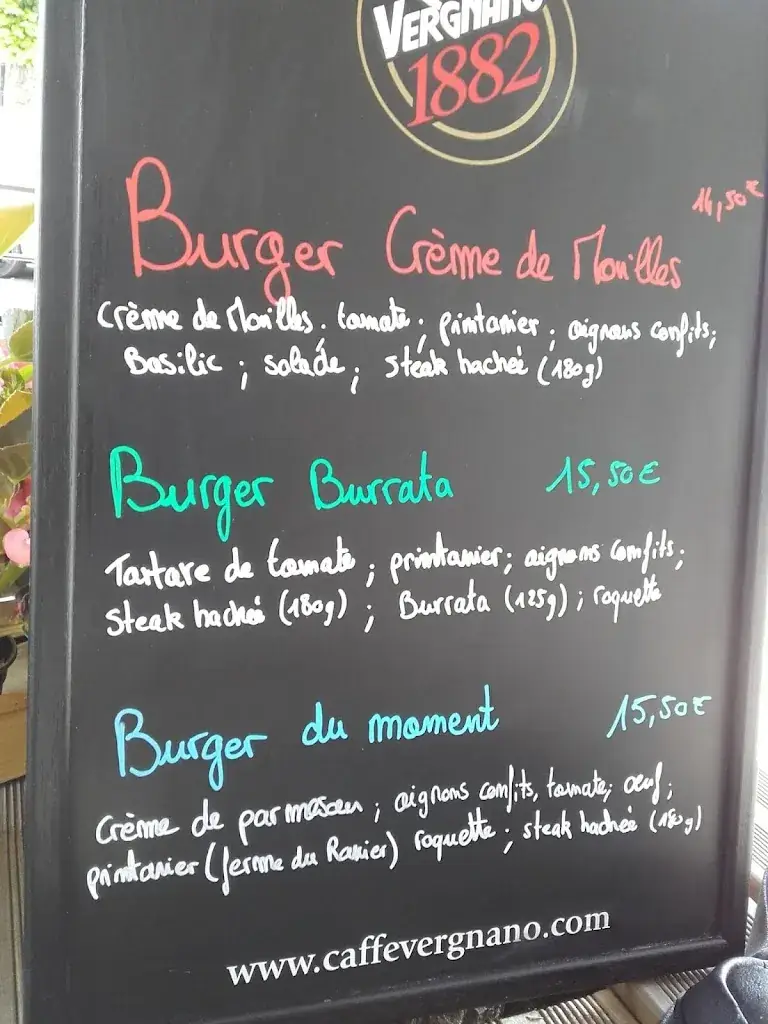 VERGNANO
1882
14,50€
Burger Crème de Morilles
Crème de Morilles; tomate; printanier; oignons confits;
Basilic; salade; steak haché (180g)
Burger Burrata 15,50€
Tartare de tomate; printanier; oignons confits;
steak haché (180g); Burrata (125g); roquette
Burger du moment 15,50€
Crème de parmesan; oignons confits, tomate; oeuf;
printanier (ferme du Ramier) roquette; steak haché (180g)
www.caffevergnano.com